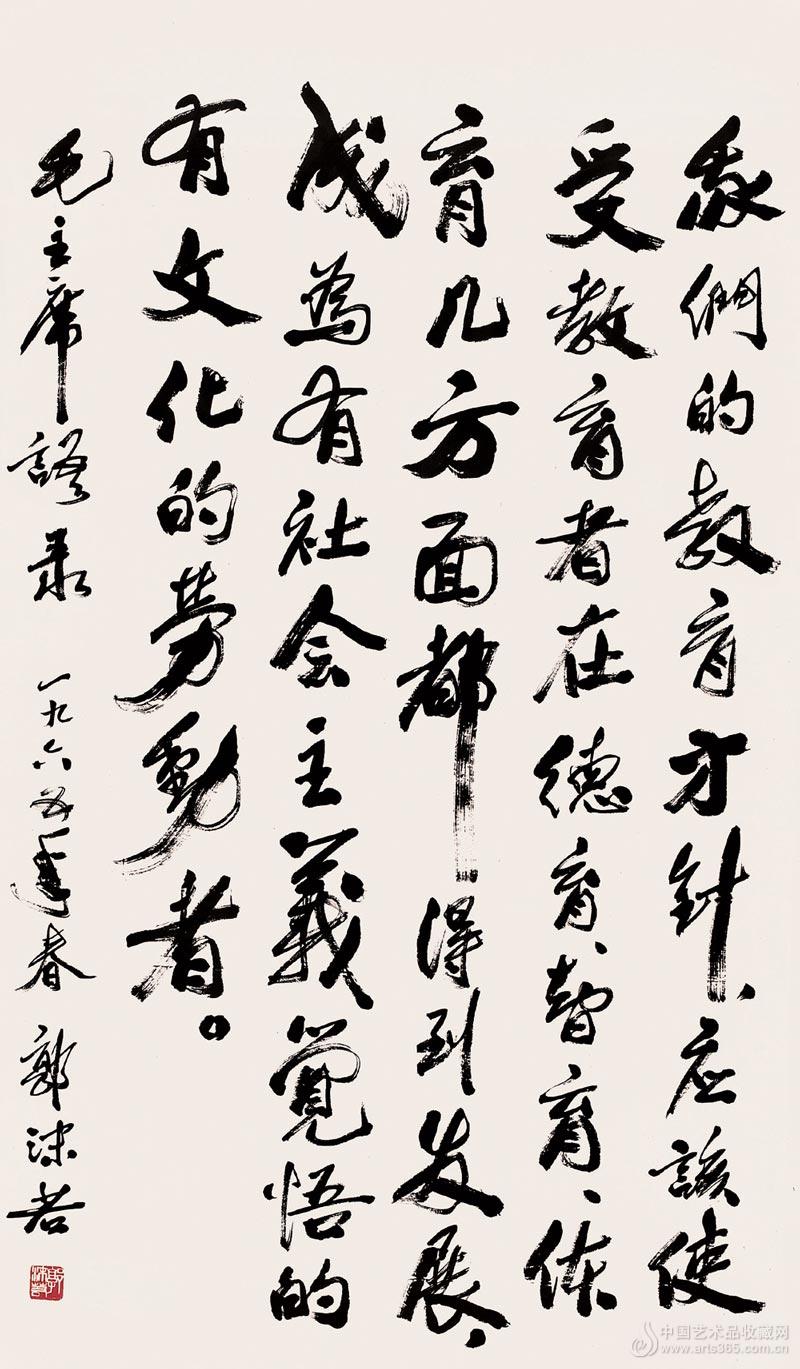 我們的教育方針、应該使
受教育者在德育、智育、体
育几方面都得到发展、
成為有社会主義覺悟的
有文化的勞動者。
毛主席語录 一九六五年春 郭沫若
郭沫若
中国艺术品收藏网
www.arts365.com.cn